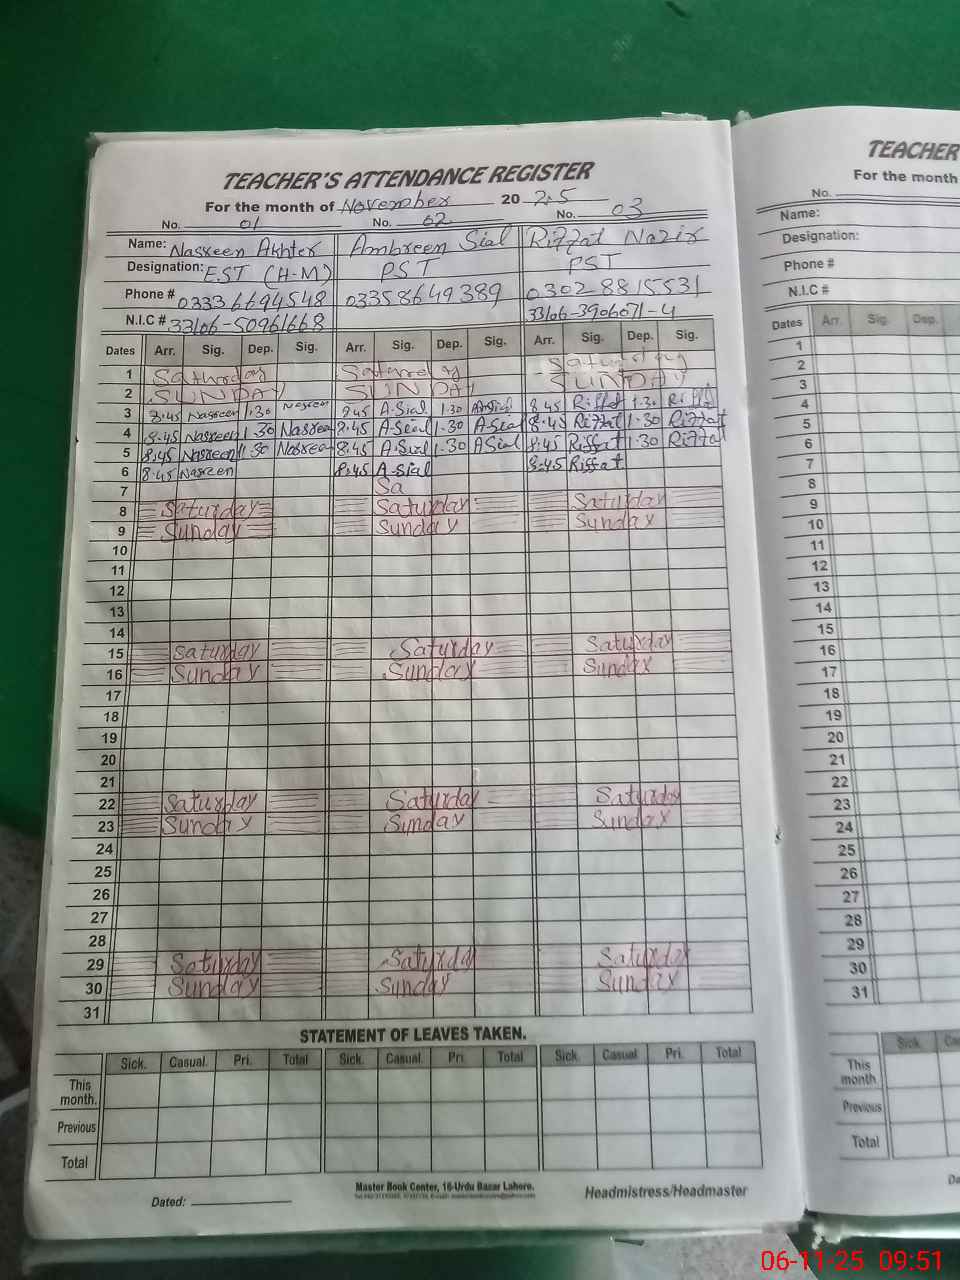 TEACHER'S ATTENDANCE REGISTER
For the month of November 2025
No. 01 No. 02 No. 03
Name: Nasreen Akhter Ambreen Sial Riffat Nazir
Designation: EST (H-M) PST PST
Phone # 03336694548 03358649389 03028815531
N.I.C # 33106-50961668 33106-3906071-4
Dates Arr. Sig. Dep. Sig. Arr. Sig. Dep. Sig. Arr. Sig. Dep. Sig.
1 Saturday Saturday Saturday
2 SUNDAY SUNDAY SUNDAY
3 8:45 Nasreen 1:30 Nasreen 8:45 A-Sial 1:30 A-Sial 8:45 Riffat 1:30 Riffat
4 8:45 Nasreen 1:30 Nasreen 8:45 A-Sial 1:30 A-Sial 8:45 Riffat 1:30 Riffat
5 8:45 Nasreen 1:30 Nasreen 8:45 A-Sial 1:30 A Sial 8:45 Riffat 1:30 Riffat
6 8:45 Nasreen 8:45 A-Sial 8:45 Riffat
7 Sa
8 Saturday Saturday Saturday
9 Sunday Sunday Sunday
10
11
12
13
14
15 Saturday Saturday Saturday
16 Sunday Sunday Sunday
17
18
19
20
21
22 Saturday Saturday Saturday
23 Sunday Sunday Sunday
24
25
26
27
28
29 Saturday Saturday Saturday
30 Sunday Sunday Sunday
31
STATEMENT OF LEAVES TAKEN.
Sick. Casual. Pri. Total Sick. Casual. Pri. Total Sick. Casual. Pri. Total
This month.
Previous
Total
Master Book Center, 16-Urdu Bazar Lahore.
Dated: Headmistress/Headmaster
TEACHER
For the month
No.
Name:
Designation:
Phone #
N.I.C #
Dates Arr. Sig. Dep.
1
2
3
4
5
6
7
8
9
10
11
12
13
14
15
16
17
18
19
20
21
22
23
24
25
26
27
28
29
30
31
Sick. Ca
This month.
Previous
Total
Da
06-11-25 09:51